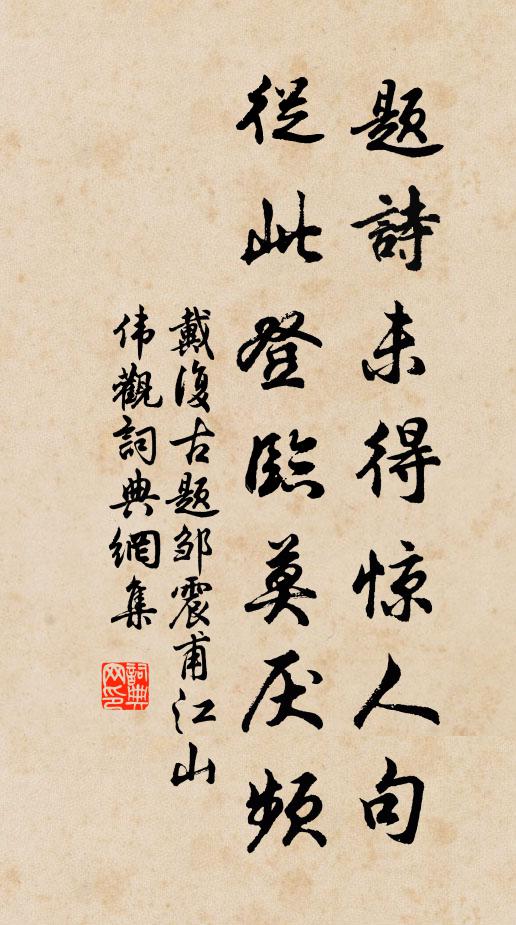 題詩未得惊人句
從此登臨莫厌頻
戴復古題邹震甫江山
伟觀詞典網集
詞典网印